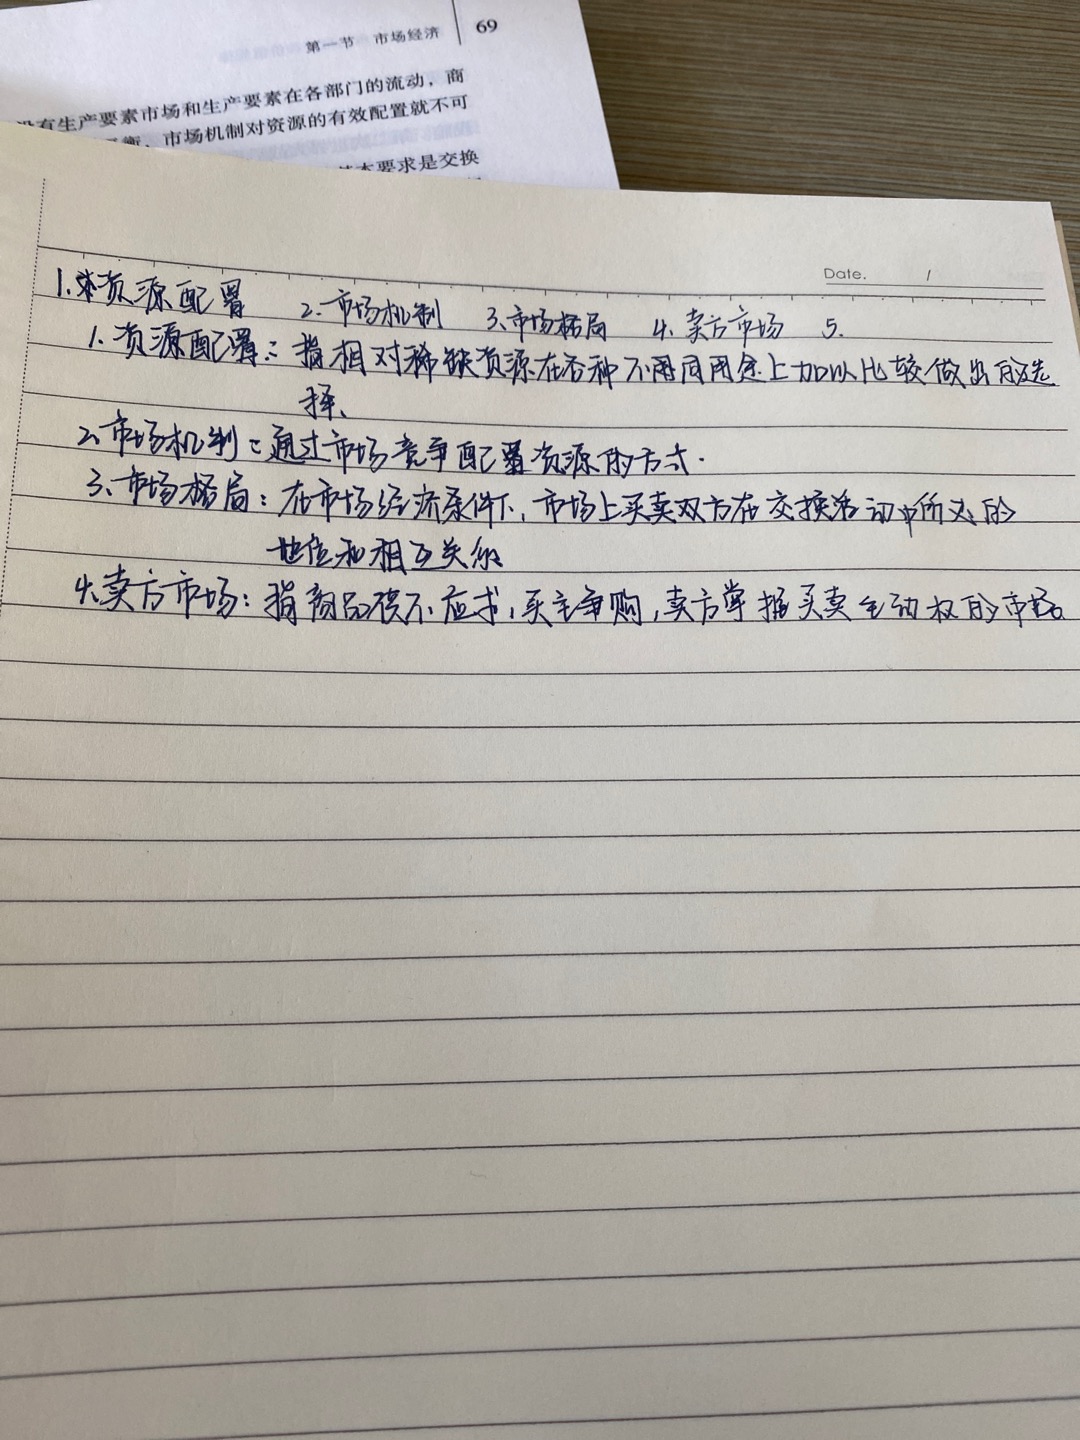 第一节 市场经济 69
没有生产要素市场和生产要素在各部门的流动，商
衡，市场机制对资源的有效配置就不可
本要求是交换
Date. /
1.资源配置 2.市场机制 3.市场格局 4.卖方市场 5.
1.资源配置：指相对稀缺资源在各种不同用途上加以比较做出的选
择、
2.市场机制：通过市场竞争配置资源的方式.
3.市场格局：在市场经济条件下，市场上买卖双方在交换活动中所处的
地位和相互关系
4.卖方市场：指商品供不应求，买主争购，卖方掌握买卖主动权的市场。